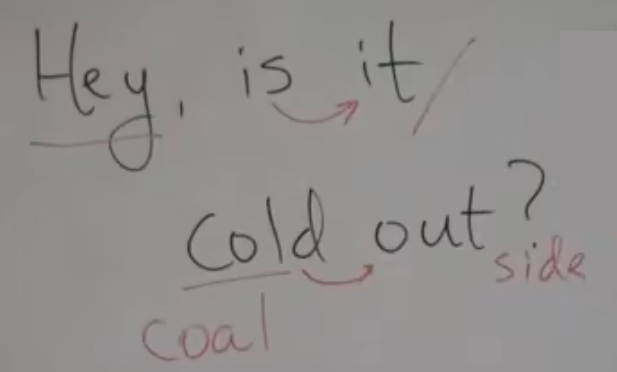 Hey, is it/
cold out?
side
coal